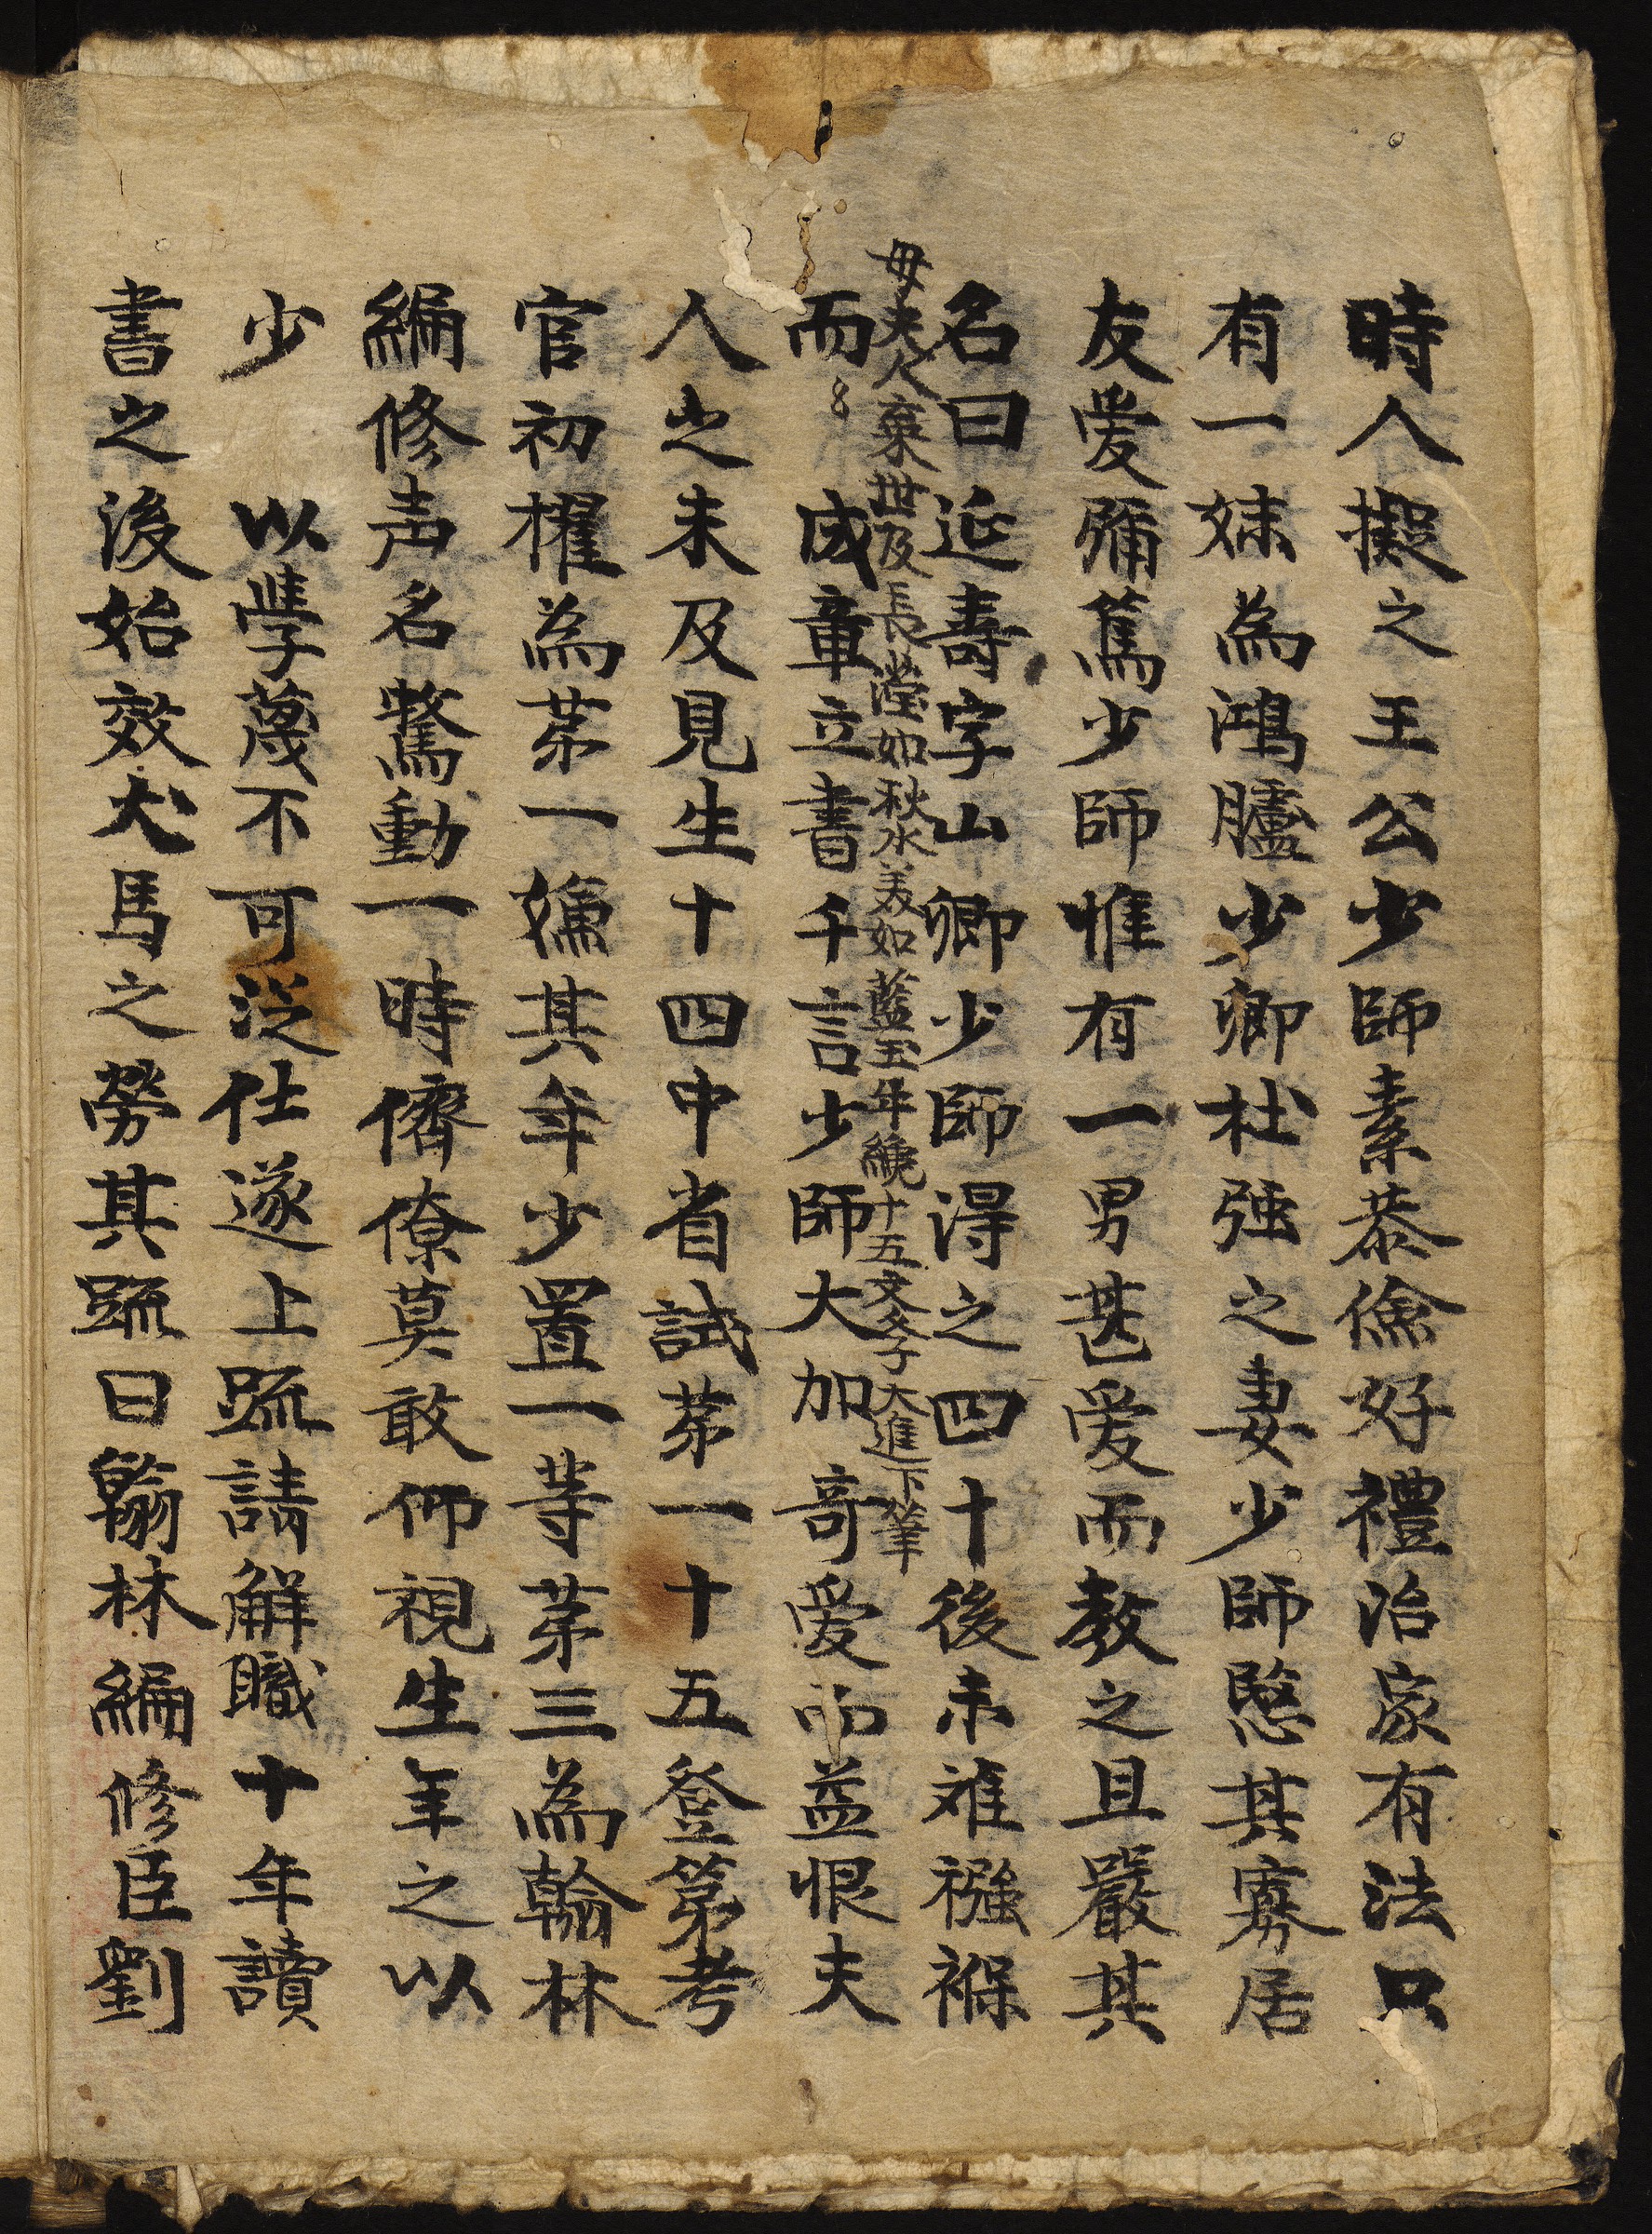 時人擬之王公少師素恭儉好禮治家有法只
有一妹為鴻臚少卿杜强之妻少師愍其寡居
友爱彌篤少師惟有一男甚爱而教之且嚴其
名曰延壽字山卿少師淂之四十後未难襁褓
母夫人棄世及長瀅如秋水美如藍玉年纔十五文夊子大進下筆
而成章立書千言少師大加奇爱而益恨夫
人之未及見生十四中省試苐一十五登第考
官初櫂為苐一嫌其年少置一等苐三為翰林
編修声名驚動一時儕僚莫敢仰視生年之以
少 以学蔑不可泛仕遂上䟽請解職十年讀
書之後始效犬馬之勞其䟽曰翰林編修臣劉